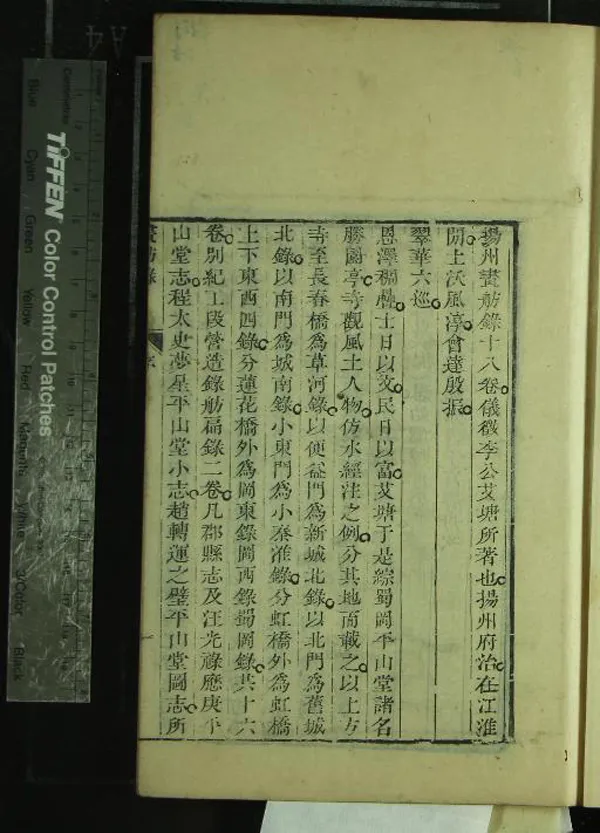 揚州畫舫錄十八卷儀徵李公艾塘所著也揚州府治在江淮
間土沃風淳會達殷振
翠華六巡
恩澤稠疊士日以文民日以富艾塘于是綜蜀岡平山堂諸名
勝園亭寺觀風土人物仿水經注之例分其地而載之以上方
寺至長春橋為草河錄以便益門為新城北錄以北門為舊城
北錄以南門為城南錄小東門為小秦淮錄分虹橋外為虹橋
上下東西四錄分蓮花橋外為岡東錄岡西錄蜀岡錄共十六
卷別紀工段營造錄舫扁錄二卷凡郡縣志及汪光祿應庚平
山堂志程太史夢星平山堂小志趙轉運之璧平山堂圖志所
畫舫錄 序
TIFFEN Color Control Patches
Centimetres
Blue Cyan Green Yellow Red Magenta White 3/Color Black
A4